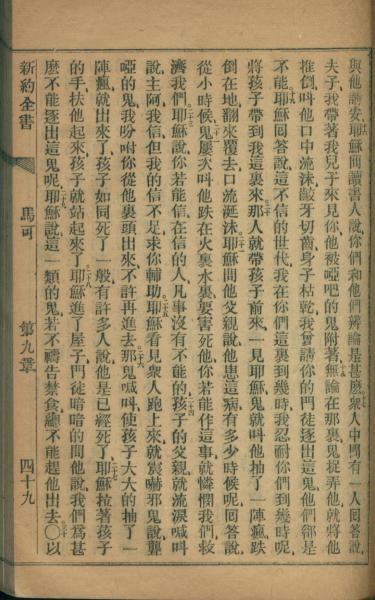 與他請安、耶穌問讀書人說、你們和他們辨論是甚麽衆人中間有一人回答說、
夫子、我帶著我兒子來見你、他被啞吧的鬼附著、無論在那裏、鬼捉弄他、就將他
推倒、叫他口中流沫、齩牙切齒、身子枯乾、我曾請你的門徒逐出這鬼、他們都是
不能、耶穌回答說、這不信的世代、我在你們這裏到幾時、我忍耐你們到幾時呢、
將孩子帶到我這裏來、那人就帶孩子前來、一見耶穌、鬼就叫他抽了一陣瘋、跌
倒在地、翻來覆去、口流涎沫、耶穌問他父親說、他患這病有多少時候呢、回答說、
從小時候、鬼屢次叫他跌在火裏水裏、要害死他、你若能作這事、就憐憫我們、救
濟我們、耶穌說、你若能信、在信的人、凡事沒有不能的、孩子的父親就流淚喊叫
說、主阿、我信、但我的信不足、求你輔助、耶穌看見衆人跑上來、就震嚇邪鬼說、聾
啞的鬼、我吩咐你從他裏頭出來、不許再進去、那鬼喊叫、使孩子大大的抽了一
陣瘋、就出來了、孩子如同死了一般、有許多人說、他是已經死了、耶穌拉著孩子
的手、扶他起來、孩子就站起來了、耶穌進了屋子、門徒暗暗的問他說、我們爲甚
麽不能逐出這鬼呢、耶穌說、這一類的鬼、若不禱告禁食、總不能趕他出去、〇以
新約全書 馬可 第九章 四十九